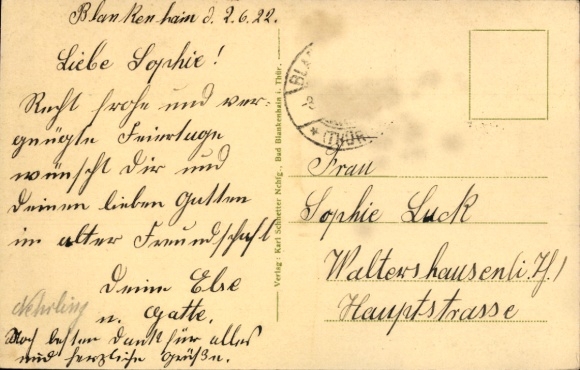 Blankenhain d. 2.6.22.
Liebe Sophie!
Recht frohe und ver-
gnügte Feiertage
wünscht Dir und
Deinen lieben Gatten
in alter Freundschaft
Deine Else
u. Gatte.
Nehrling
Noch besten Dank für alles
und herzliche Grüße.
Verlag: Karl Schnetter Nchfg., Bad Blankenhain i. Thür.
BLA
* (THÜR
Frau
Sophie Luck
Waltershausen i. Th.
Hauptstrasse